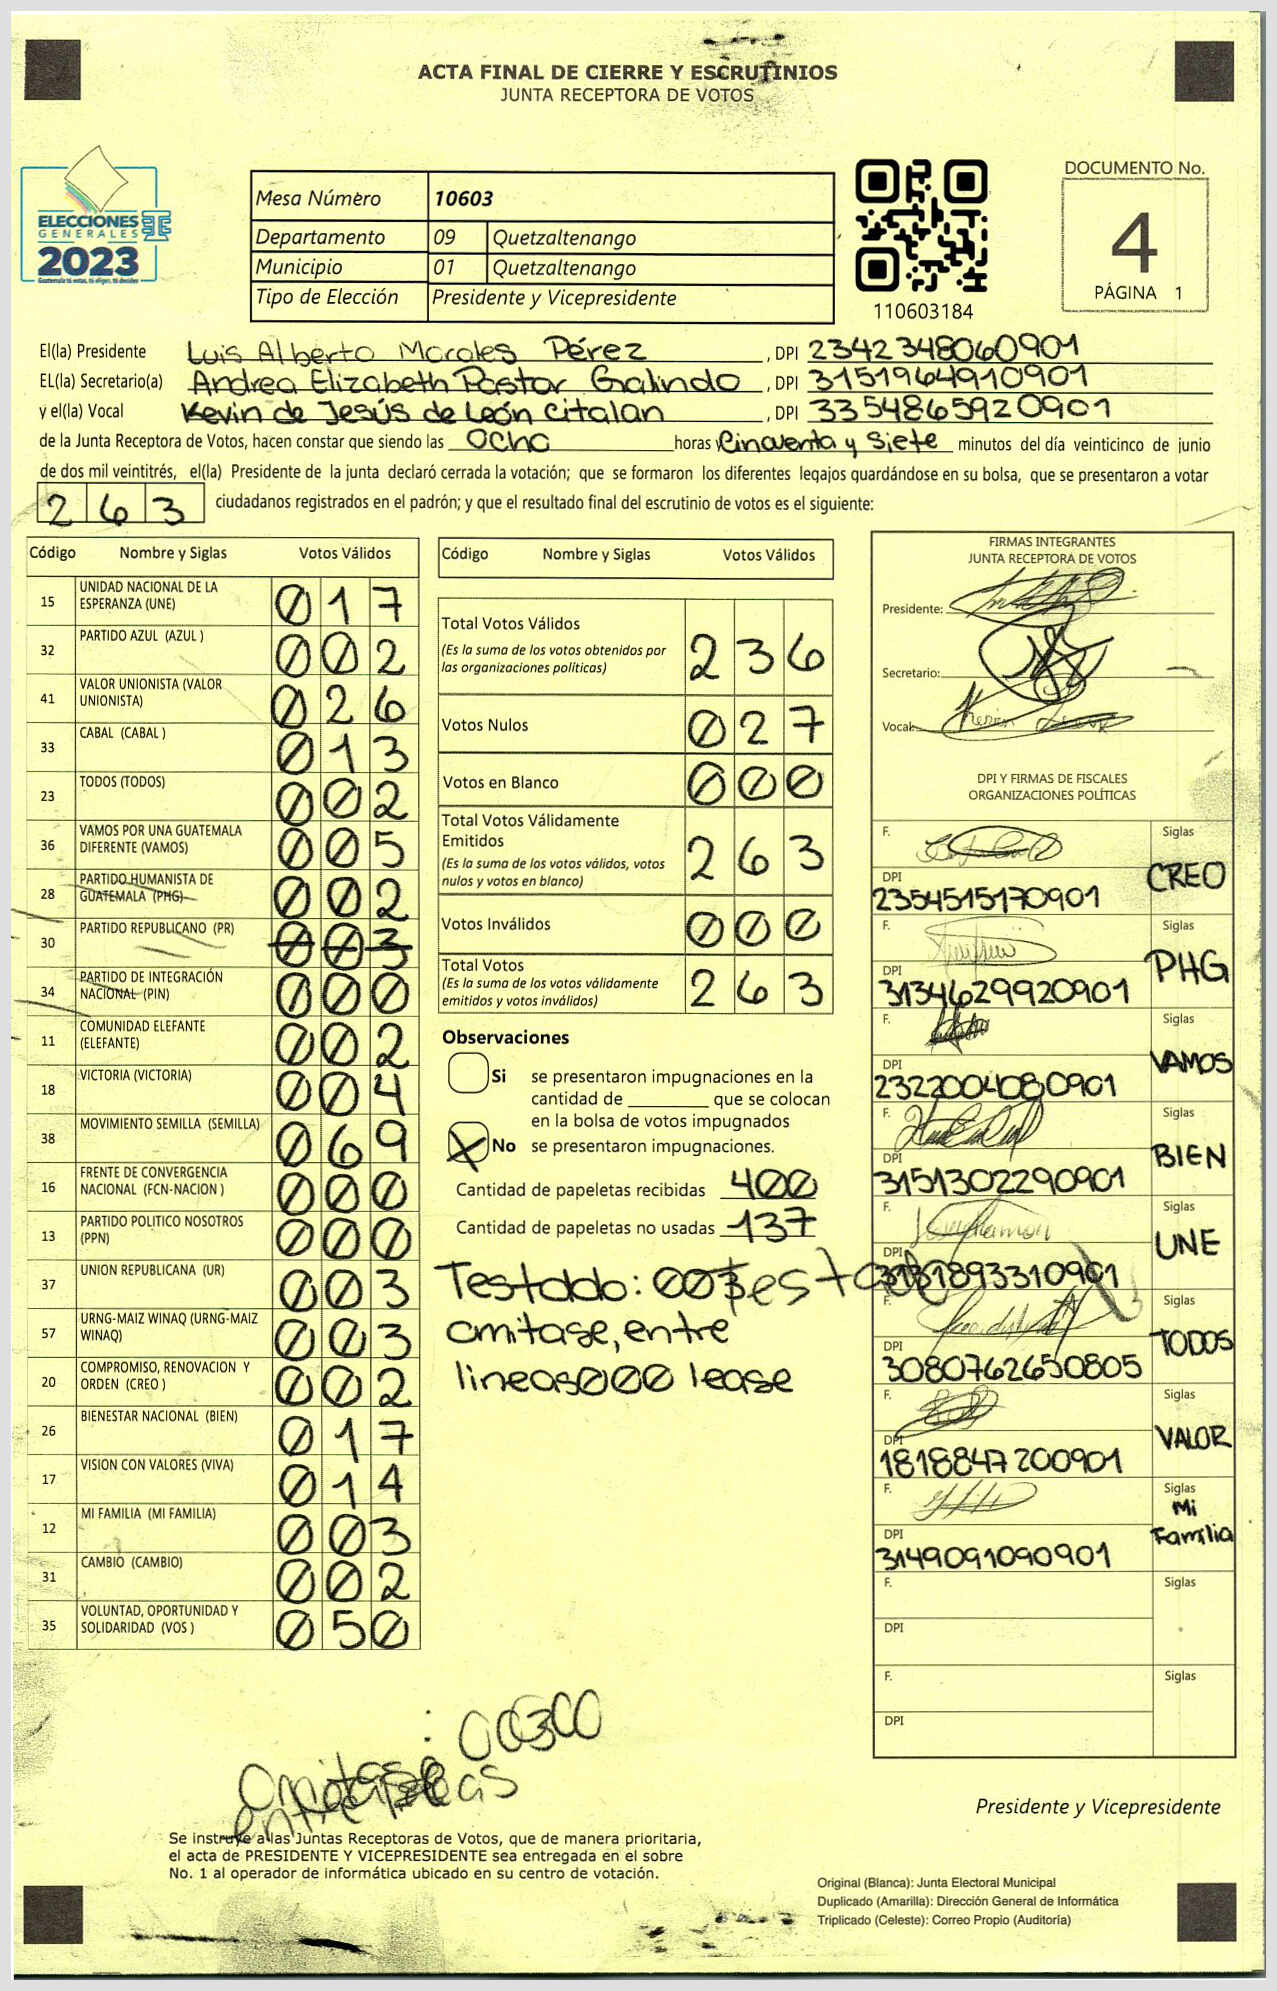 ACTA FINAL DE CIERRE Y ESCRUTINIOS
JUNTA RECEPTORA DE VOTOS
ELECCIONES
GENERALES
2023
Mesa Número 10603
Departamento 09 Quetzaltenango
Municipio 01 Quetzaltenango
Tipo de Elección Presidente y Vicepresidente
110603184
DOCUMENTO No.
4
PÁGINA 1
El(la) Presidente Luis Alberto Morales Pérez, DPI 2342348060901
EL(la) Secretario(a) Andrea Elizabeth Pastor Galindo, DPI 3151964910901
y el(la) Vocal Kevin de Jesús de León Citalan, DPI 3354865920901
de la Junta Receptora de Votos, hacen constar que siendo las Ocho horas y Cincuenta y Siete minutos del día veinticinco de junio
de dos mil veintitrés, el(la) Presidente de la junta declaró cerrada la votación; que se formaron los diferentes legajos quardándose en su bolsa, que se presentaron a votar
263 ciudadanos registrados en el padrón; y que el resultado final del escrutinio de votos es el siguiente:
Código Nombre y Siglas Votos Válidos
15 UNIDAD NACIONAL DE LA ESPERANZA (UNE) 017
32 PARTIDO AZUL (AZUL ) 002
41 VALOR UNIONISTA (VALOR UNIONISTA) 026
33 CABAL (CABAL ) 013
23 TODOS (TODOS) 002
36 VAMOS POR UNA GUATEMALA DIFERENTE (VAMOS) 005
28 PARTIDO HUMANISTA DE GUATEMALA (PHG) 002
30 PARTIDO REPUBLICANO (PR) 003
34 PARTIDO DE INTEGRACIÓN NACIONAL (PIN) 000
11 COMUNIDAD ELEFANTE (ELEFANTE) 002
18 VICTORIA (VICTORIA) 004
38 MOVIMIENTO SEMILLA (SEMILLA) 069
16 FRENTE DE CONVERGENCIA NACIONAL (FCN-NACION ) 000
13 PARTIDO POLITICO NOSOTROS (PPN) 000
37 UNION REPUBLICANA (UR) 003
57 URNG-MAIZ WINAQ (URNG-MAIZ WINAQ) 003
20 COMPROMISO, RENOVACION Y ORDEN (CREO ) 002
26 BIENESTAR NACIONAL (BIEN) 017
17 VISION CON VALORES (VIVA) 014
12 MI FAMILIA (MI FAMILIA) 003
31 CAMBIO (CAMBIO) 002
35 VOLUNTAD, OPORTUNIDAD Y SOLIDARIDAD (VOS ) 050
Código Nombre y Siglas Votos Válidos
Total Votos Válidos 236
(Es la suma de los votos obtenidos por
las organizaciones políticas)
Votos Nulos 027
Votos en Blanco 000
Total Votos Válidamente
Emitidos 263
(Es la suma de los votos válidos, votos
nulos y votos en blanco)
Votos Inválidos 000
Total Votos 263
(Es la suma de los votos válidamente
emitidos y votos inválidos)
Observaciones
Si se presentaron impugnaciones en la
cantidad de ________ que se colocan
en la bolsa de votos impugnados
X No se presentaron impugnaciones.
Cantidad de papeletas recibidas 400
Cantidad de papeletas no usadas 137
Testado: 003
omitase, entre
lineas 000 lease
FIRMAS INTEGRANTES
JUNTA RECEPTORA DE VOTOS
Presidente:
Secretario:
Vocal:
DPI Y FIRMAS DE FISCALES
ORGANIZACIONES POLÍTICAS
F. Siglas
DPI 2354515170901 CREO
F. Siglas
DPI 3134629920901 PHG
F. Siglas
DPI 2322004080901 VAMOS
F. Siglas
DPI 3151302290901 BIEN
F. Siglas
DPI 3131893310901 UNE
F. Siglas
DPI 3080762650805 TODOS
F. Siglas
DPI 1818847200901 VALOR
F. Siglas
DPI 3149091090901 Mi Familia
F. Siglas
DPI
F. Siglas
DPI
Presidente y Vicepresidente
Se instruye a las Juntas Receptoras de Votos, que de manera prioritaria,
el acta de PRESIDENTE Y VICEPRESIDENTE sea entregada en el sobre
No. 1 al operador de informática ubicado en su centro de votación.
Original (Blanca): Junta Electoral Municipal
Duplicado (Amarilla): Dirección General de Informática
Triplicado (Celeste): Correo Propio (Auditoría)